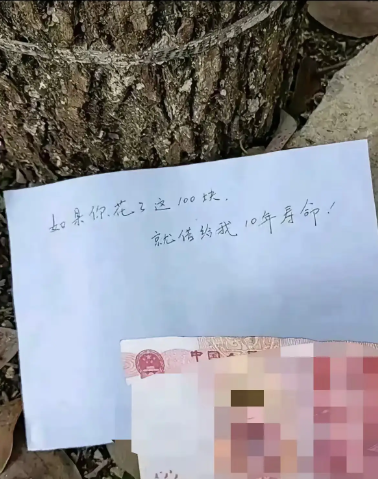 如果你花了这100块，
就借给我10年寿命！
中国